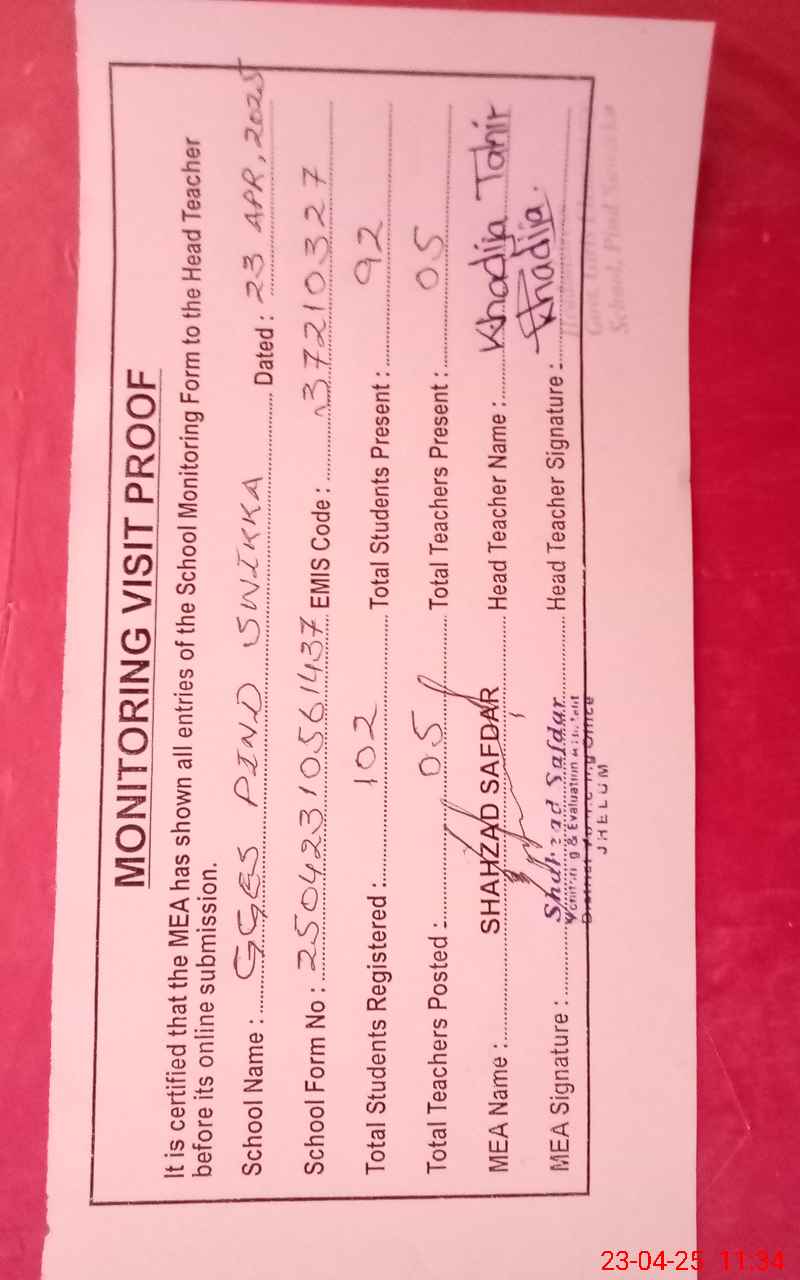 MONITORING VISIT PROOF
It is certified that the MEA has shown all entries of the School Monitoring Form to the Head Teacher
before its online submission.
School Name : GGES PIND SWIKKA Dated : 23 APR, 2025
School Form No : 25042310561437 EMIS Code : 37210327
Total Students Registered : 102 Total Students Present : 92
Total Teachers Posted : 05 Total Teachers Present : 05
MEA Name : SHAHZAD SAFDAR Head Teacher Name : Khadija Tahir
MEA Signature : Shahzad Safdar Head Teacher Signature : Khadija.
Monitoring & Evaluation
District Monitoring Office
JHELUM
School, Pind
23-04-25 11:34